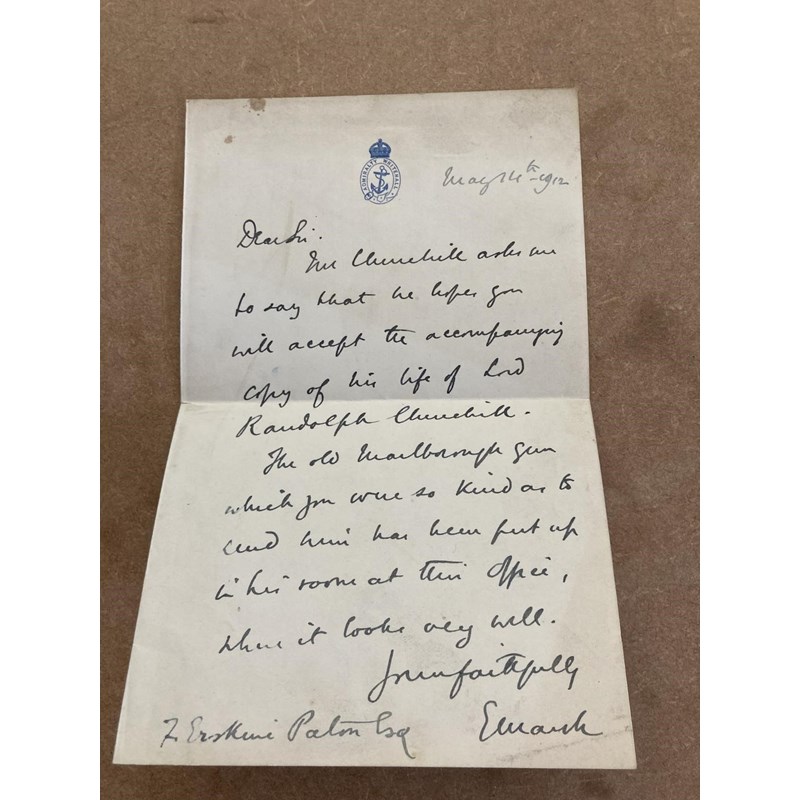 ADMIRALTY WHITEHALL
May 14th 1912
Dear Sir.
Mr Churchill asks me
to say that he hopes you
will accept the accompanying
copy of his life of Lord
Randolph Churchill.
The old Marlborough gun
which you were so kind as to
send him has been put up
in his room at this Office,
where it looks very well.
Yours faithfully
EMarsh
F. Erskine Paton Esq